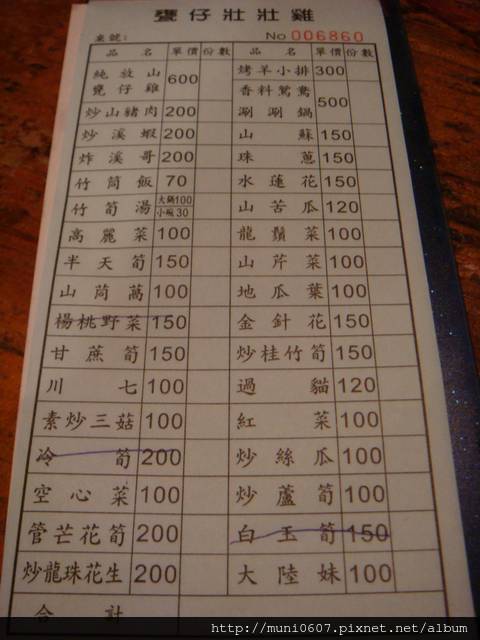 甕仔壯壯雞
桌號: No 006860
品名 單價 份數 品名 單價 份數
純放山甕仔雞 600 烤羊小排 300
香料鴛鴦涮涮鍋 500
炒山豬肉 200
炒溪蝦 200 山蘇 150
炸溪哥 200 珠蔥 150
竹筒飯 70 水蓮花 150
竹筍湯 大鍋100 小碗30 山苦瓜 120
高麗菜 100 龍鬚菜 100
半天筍 150 山芹菜 100
山茼萵 100 地瓜葉 100
楊桃野菜 150 金針花 150
甘蔗筍 150 炒桂竹筍 150
川七 100 過貓 120
素炒三菇 100 紅菜 100
冷筍 200 炒絲瓜 100
空心菜 100 炒蘆筍 100
管芒花筍 200 白玉筍 150
炒龍珠花生 200 大陸妹 100
合計
http://muni0607.pixnet.net/album